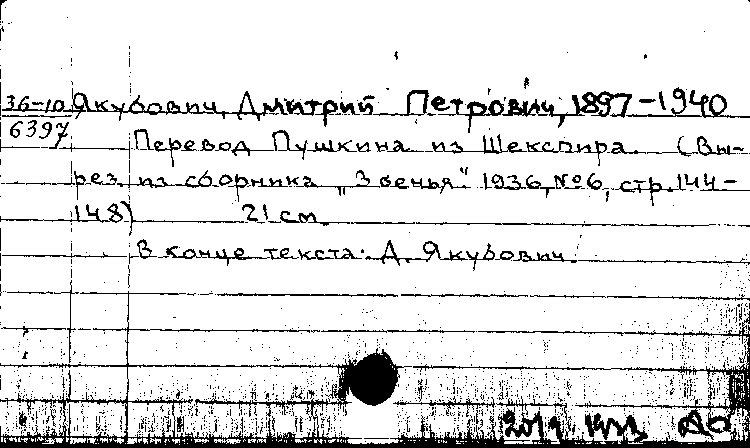 36-10 Якубович, Дмитрий Петрович, 1897-1940
6397
Перевод Пушкина из Шекспира. (Вы-
рез. из сборника „Звенья" 1936, №6, стр. 144-
148) 21 см.
В конце текста: Д. Якубович.